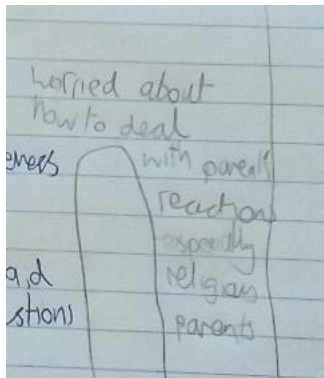 worried about
how to deal
with parents
reaction
especially
religious
parents
eness
a,d
stions